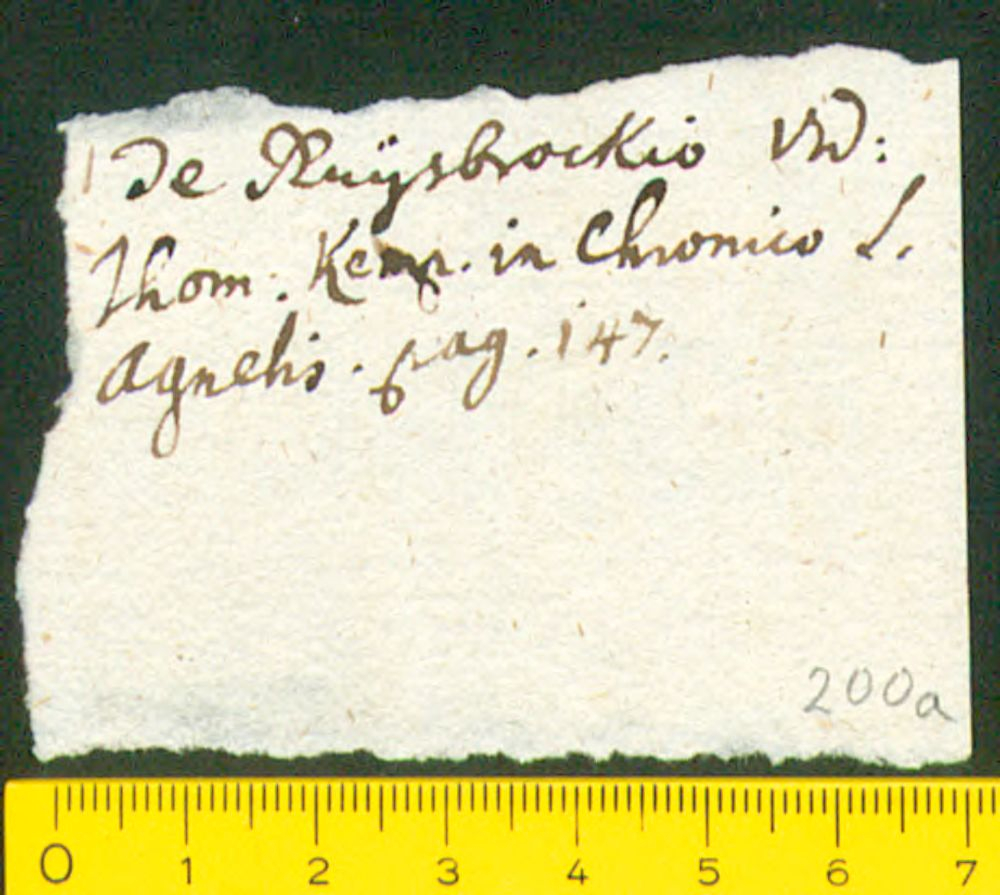 De Ruÿsbrockio vid:
Thom: Kemp. in Chronico S.
Agnetis. pag. 147.
200a
0 1 2 3 4 5 6 7